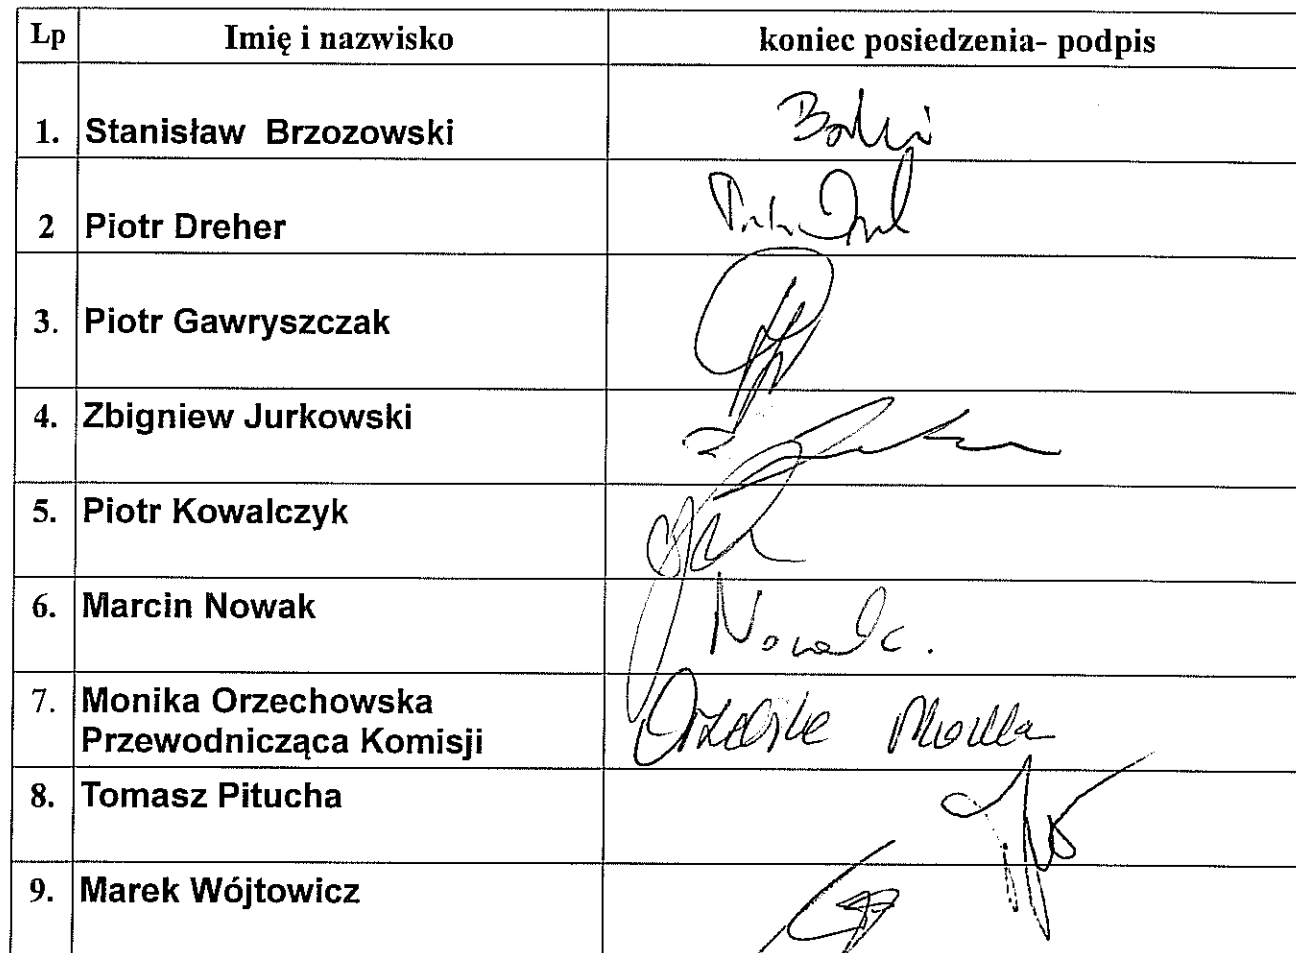 Lp Imię i nazwisko koniec posiedzenia- podpis
1. Stanisław Brzozowski
2 Piotr Dreher
3. Piotr Gawryszczak
4. Zbigniew Jurkowski
5. Piotr Kowalczyk
6. Marcin Nowak Nowak.
7. Monika Orzechowska
Przewodnicząca Komisji
8. Tomasz Pitucha
9. Marek Wójtowicz